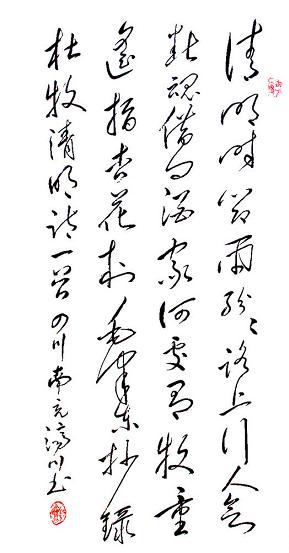 清明时节雨纷纷路上行人欲
断魂借问酒家何处有牧童
遥指杏花村毛泽东抄录
杜牧清明诗一首四川南充川书